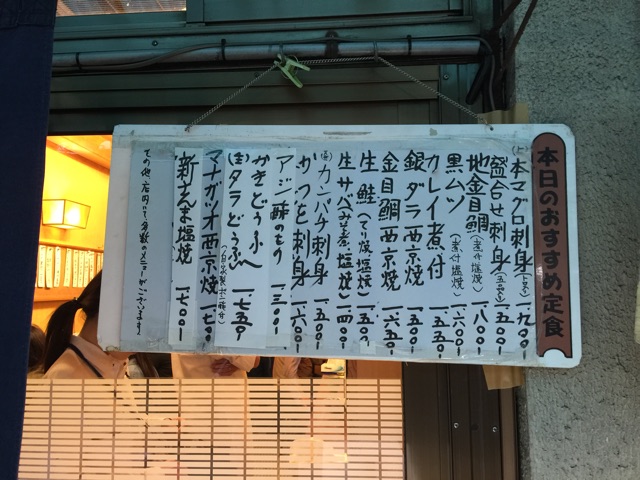 本日のおすすめ定食
(上)本マグロ刺身 一、九〇〇-
盛合せ刺身 一、五〇〇-
地金目鯛(煮付塩焼) 一、八〇〇-
黒ムツ(煮付塩焼) 一、六〇〇-
カレイ煮付 一、五五〇-
銀ダラ西京焼 一、五五〇-
金目鯛西京焼 一、六五〇-
生鮭(てり焼塩焼) 一、五〇〇
生サバ(みそ煮塩焼) 一、四〇〇-
カンパチ刺身 一、五〇〇-
かつを刺身 一、六〇〇-
アジ酢のもの 一、三〇〇-
かきどうふ
(生)タラどうふ 一、七五〇-
マナガツオ西京焼 一、六〇〇
新さんま塩焼 一、七〇〇-
その他店内にて多数のメニューがございます